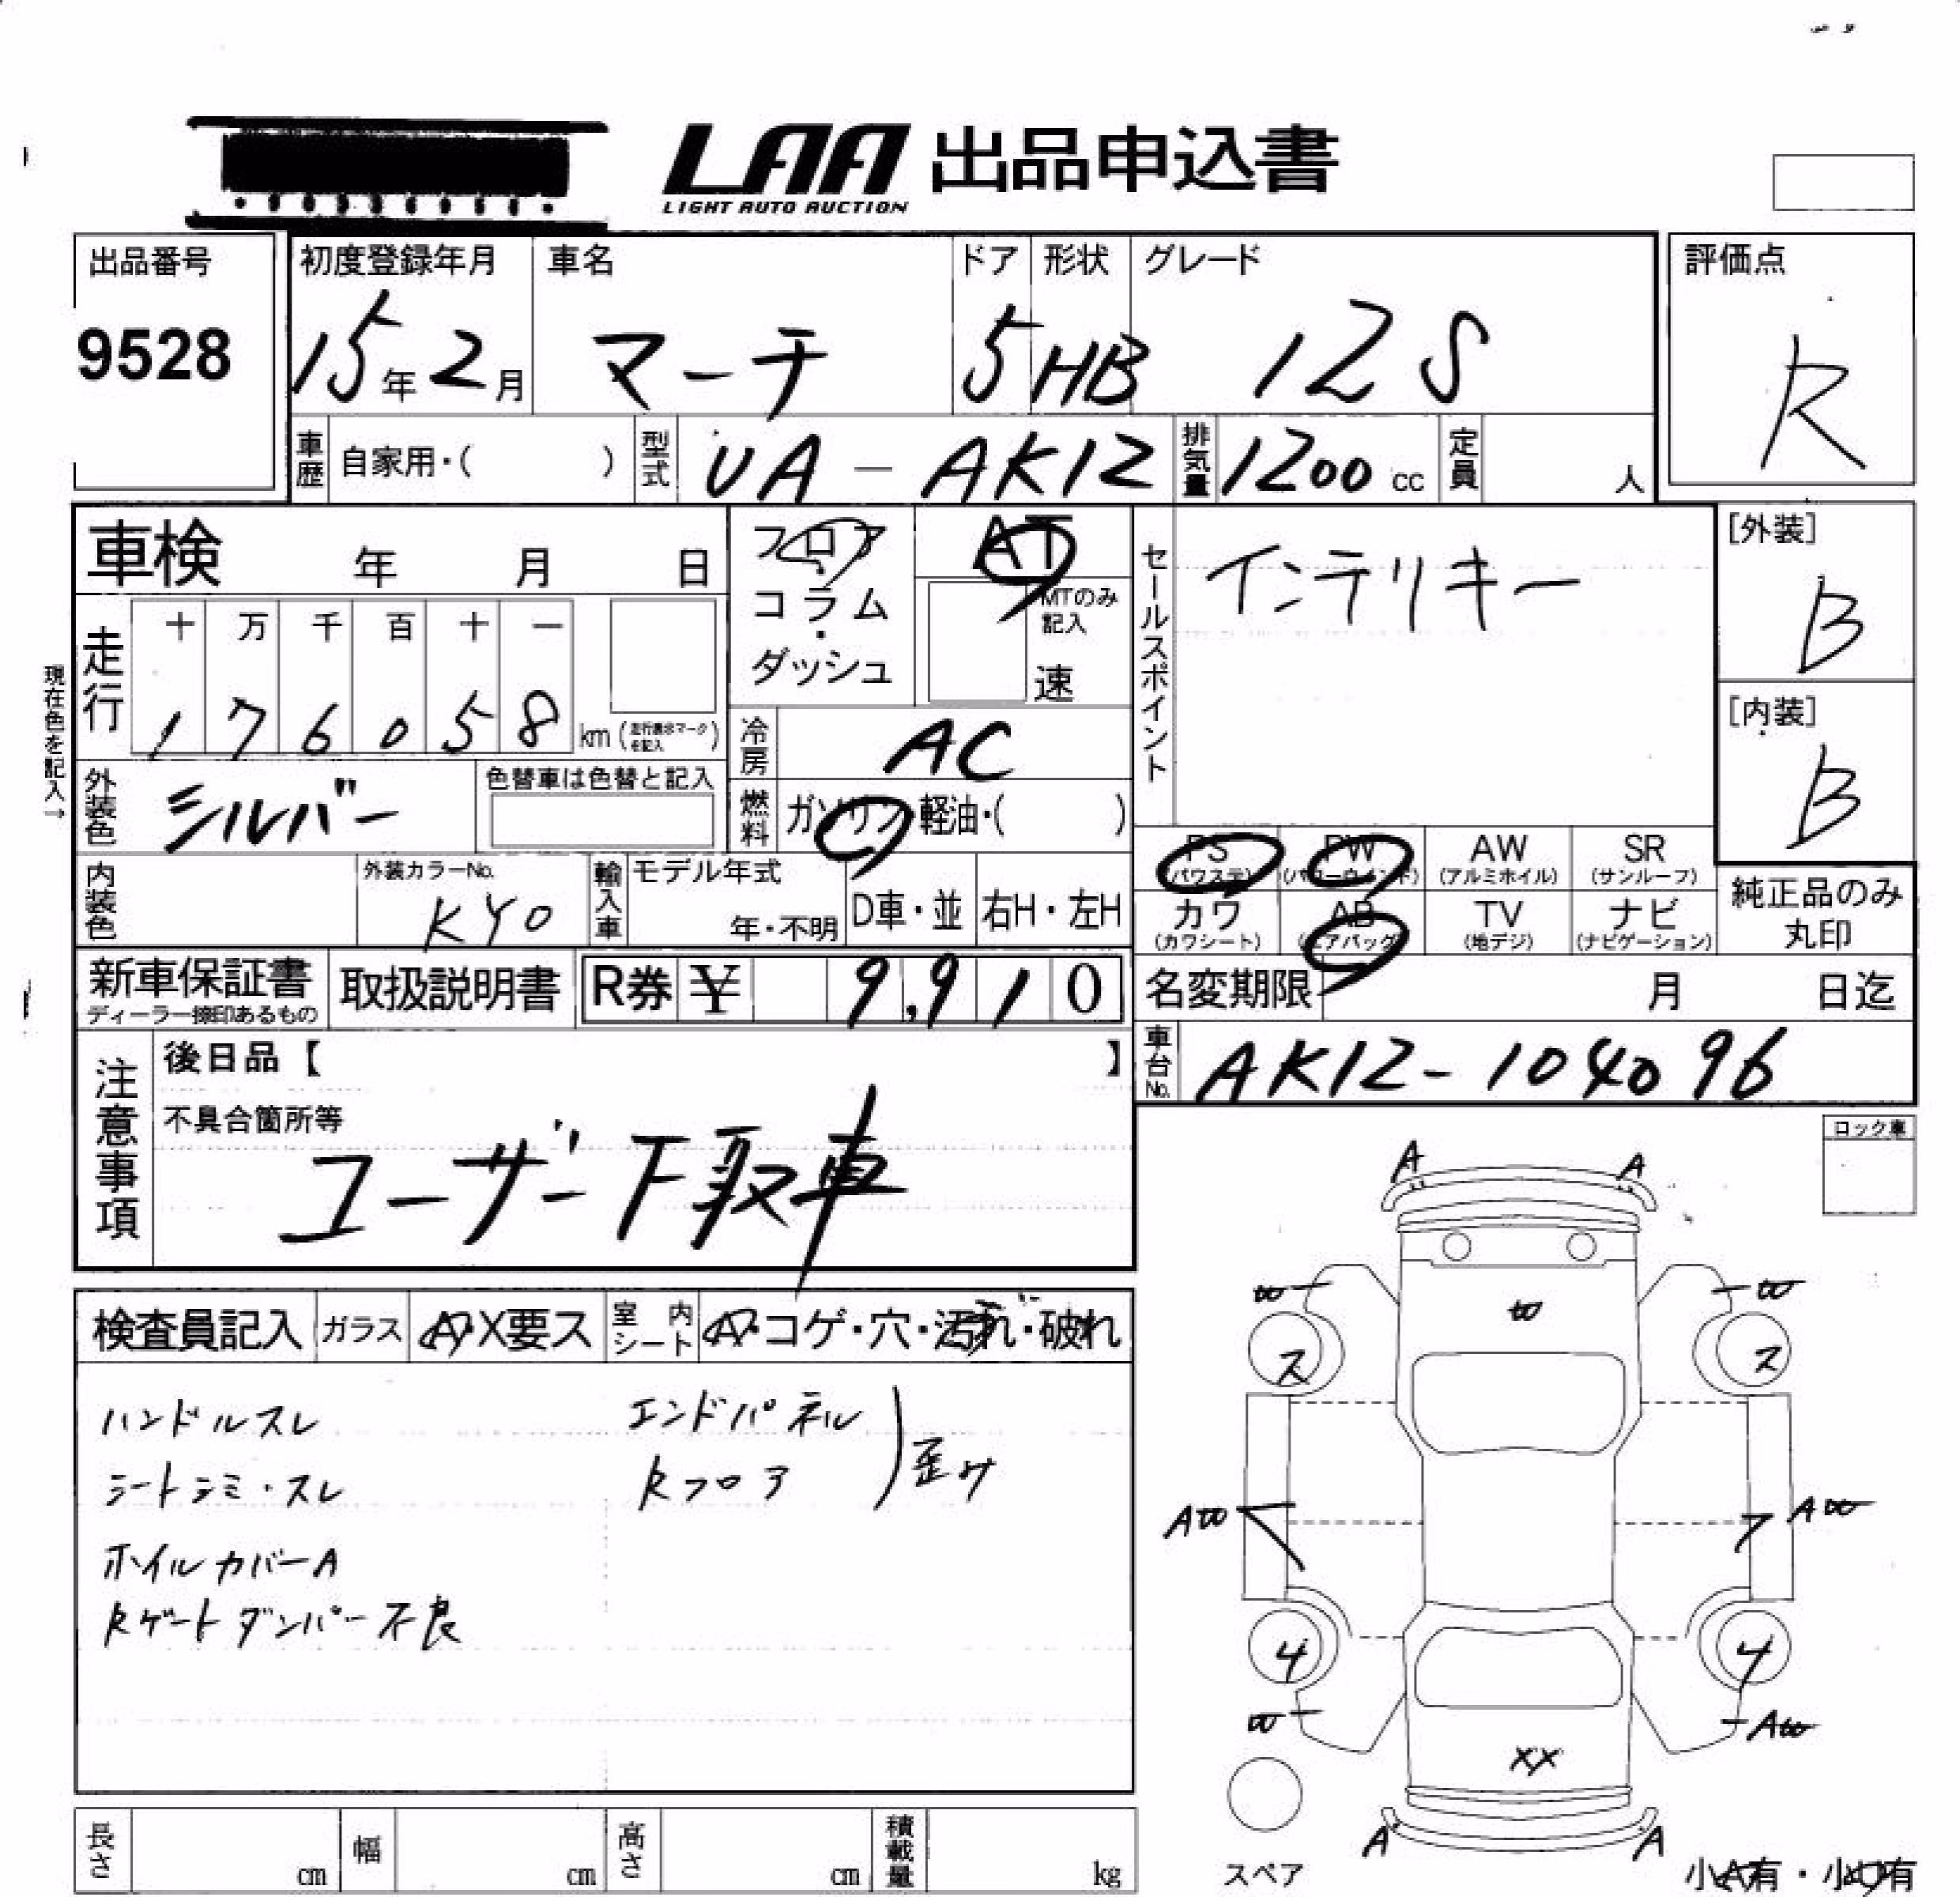 LAA 出品申込書
LIGHT AUTO AUCTION
出品番号 9528
初度登録年月 15年2月
車名 マーチ
ドア 5
形状 HB
グレード 12S
評価点 R
車歴 自家用・( )
型式 UA-AK12
排気量 1200cc
定員 人
車検 年 月 日
フロア・コラム・ダッシュ
AT
MTのみ記入
速
セールスポイント インテリキー
[外装] B
[内装] B
現在色を記入→
走行 十 万 千 百 十 一
176058 km
冷房 AC
外装色 シルバー
色替車は色替と記入
燃料 ガソリン・軽油・( )
PS (パワステ)
PW (パワーウインド)
AW (アルミホイル)
SR (サンルーフ)
内装色
外装カラーNo. KY0
輸入車 モデル年式 年・不明
D車・並
右H・左H
カワ (カワシート)
AB (エアバッグ)
TV (地デジ)
ナビ (ナビゲーション)
純正品のみ丸印
新車保証書
ディーラー捺印あるもの
取扱説明書
R券 ¥ 9,910
名変期限 月 日迄
車台No. AK12-104096
注意事項
後日品【 】
不具合箇所等
ユーザー下取車
ロック車
検査員記入
ガラス A・X要ス
室内シート A・コゲ・穴・汚れ・破れ
ハンドルスレ
シートシミ・スレ
ホイルカバーA
Rゲートダンパー不良
エンドパネル
Rフロア
歪み
A A
W W W
ス ス
AW AW
4 4
W AW
XX
A A
スペア
小A有・小U有
長さ cm
幅 cm
高さ cm
積載量 kg